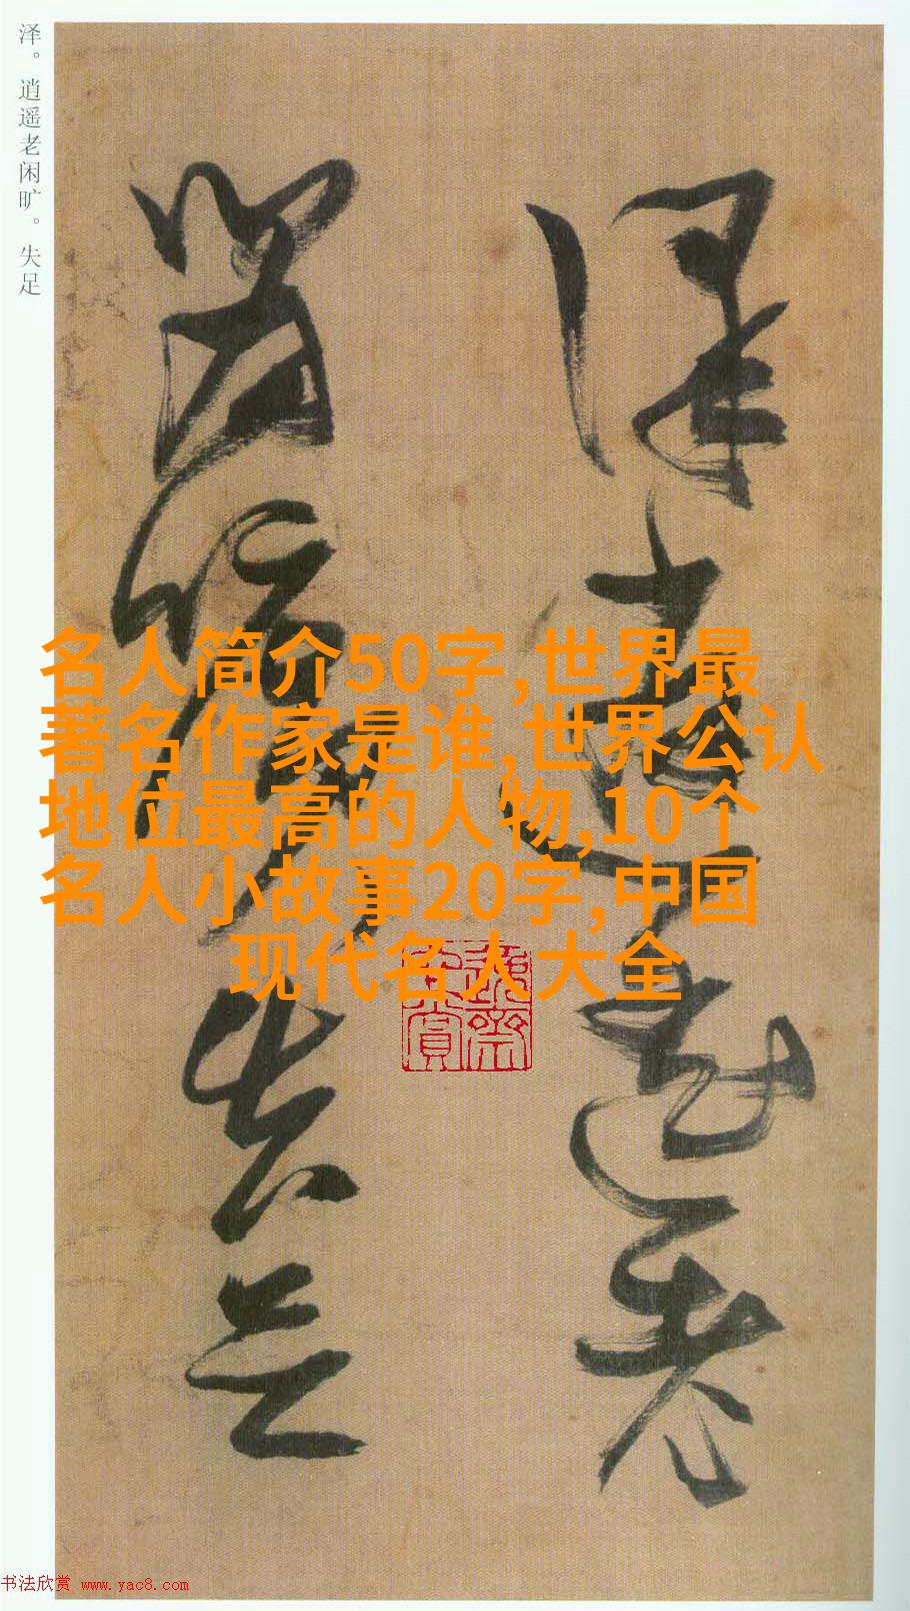 泽。逍遥老闲旷。失足
泽逍遥老
闲旷失足
名人简介50字,世界最
著名作家是谁,世界公认
地位最高的人物,10个
名人小故事20字,中国
现代名人大全
书法欣赏 www.yac8.com